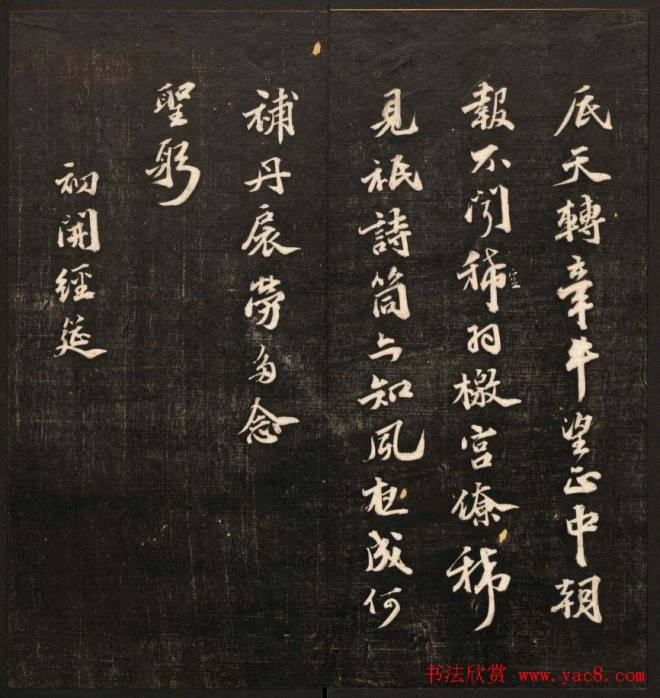 底天轉牽牛望正中朝
報不聞稀羽檄宮僚稀
見祇詩筒亦知夙夜成何
補丹扆勞多念
聖躬
初開經筵
书法欣赏 www.yac8.com